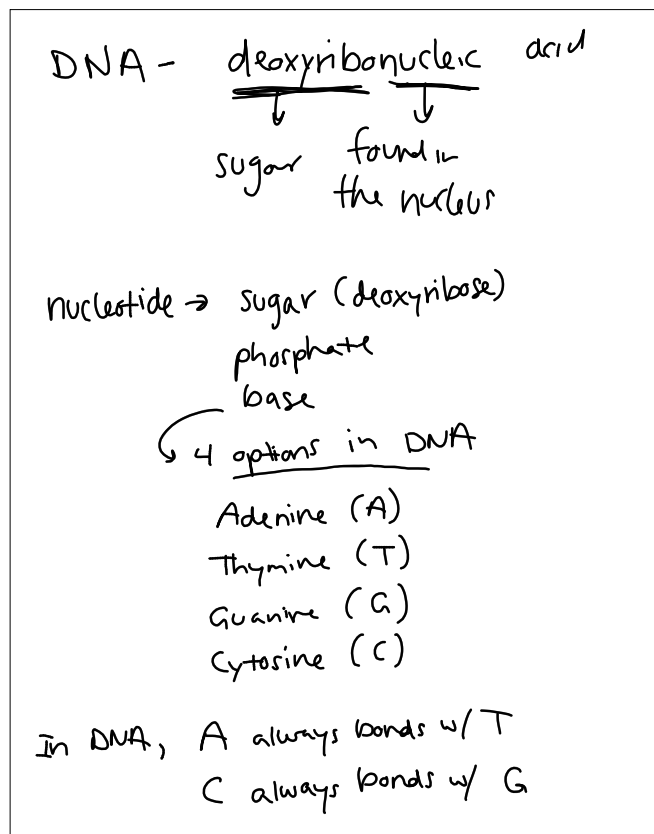 DNA - deoxyribonucleic acid
sugar found in
the nucleus
nucleotide → sugar (deoxyribose)
phosphate
base
4 options in DNA
Adenine (A)
Thymine (T)
Guanine (G)
Cytosine (C)
In DNA, A always bonds w/ T
C always bonds w/ G